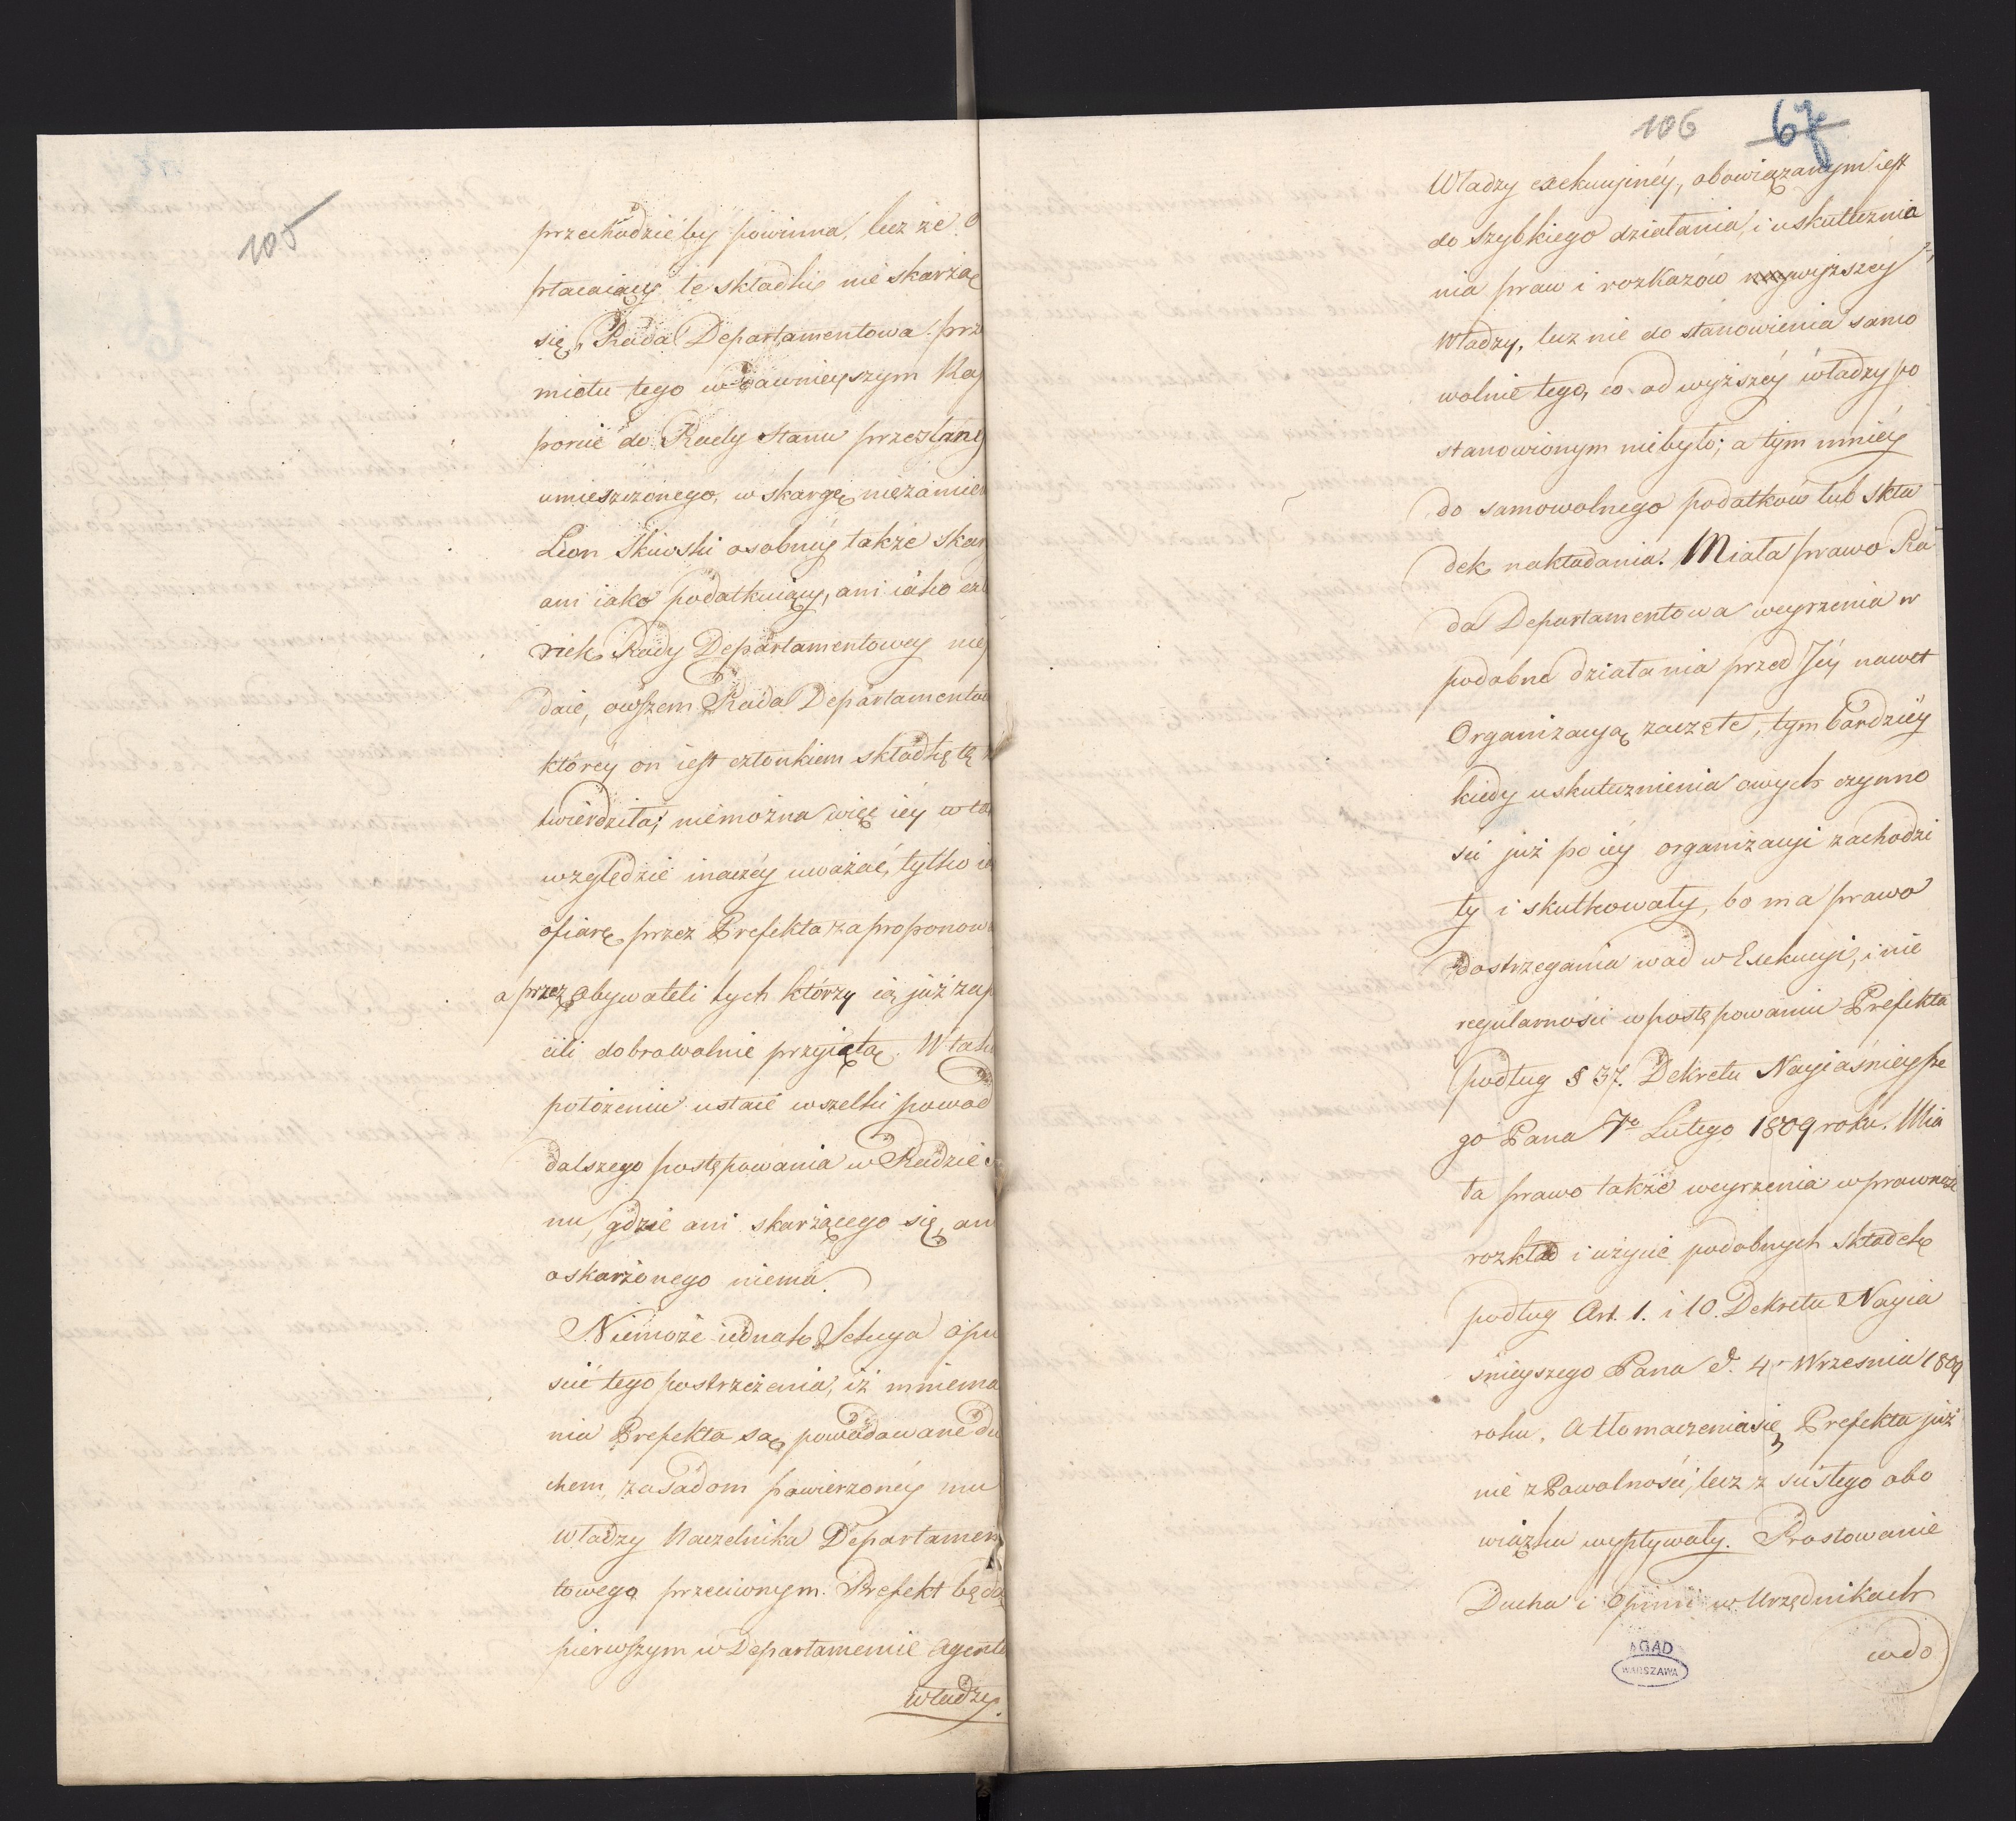 105
przechodzić by powinna, lecz że
płacaiący te składki nie skarżą
się, Rada Departamentowa prz
miotu tego w dawnieyszym Ra
porcie do Rady Stanu przesłany
umieszczonego, w skargę niezamien
Leon Skiwski osobney także skar
ani iako podatkuiący, ani iako czł
nek Rady Departamentowey nie
daie, owszem Rada Departamentow
którey on iest członkiem składkę tę
twierdziła; niemożna więc iéy w ta
względzie inaczéy uważać, tylko ia
ofiarę przez Prefekta zaproponow
a przez obywateli tych którzy ią już zap
cili dobrowolnie przyiętą. W taki
położeniu ustaie wszelki powod
dalszego postępowania w Radzie S
nu, gdzie ani skarżącego się, ani
oskarżonego niema.
Niemoże iednak Sekcya opu
ścić tego postrzeżenia, iż mniema
nia Prefekta są powodowane du
chem, zasadom powierzonéy mu
władzy Naczelnika Departamen
towego przeciwnym. Prefekt będą
pierwszym w Departamencie Agente
władzy.
106 67
Władzy exekucyinéy, obowiązanym iest
do szybkiego działania, i uskutecznia
nia praw i rozkazów naywyższéy
Władzy, lecz nie do stanowienia samo
wolnie tego, co od wyższéy władzy po
stanowionym niebyło; a tym mniéy
do samowolnego podatków lub skła
dek nakładania. Miała prawo Ra
da Departamentowa weyrzenia w
podobne działania przed Jéy nawet
Organizacyą zaczęte, tym bardziéy
kiedy uskutecznienia owych czynno
ści już po iéy organizacyi zachodzi
ły i skutkowały, bo ma prawo
dostrzegania wad w Exekucyi, i nie
regularności w postępowaniu Prefekta
podług § 37. Dekretu Nayiaśnieysze
go Pana 7º Lutego 1809 roku. Mia
ła prawo także weyrzenia w prawność
rozkład i użycie podobnych składek
podług Art. 1. i 10. Dekretu Nayia
śnieyszego Pana d. 4. Wrzesnia 1809
roku, A tłomaczenia się Prefekta już
nie z Powolności, lecz z ścisłego obo
wiązku wypływały. Prostowanie
Ducha i Opinii w Urzędnikach
wdo
AGAD
WARSZAWA